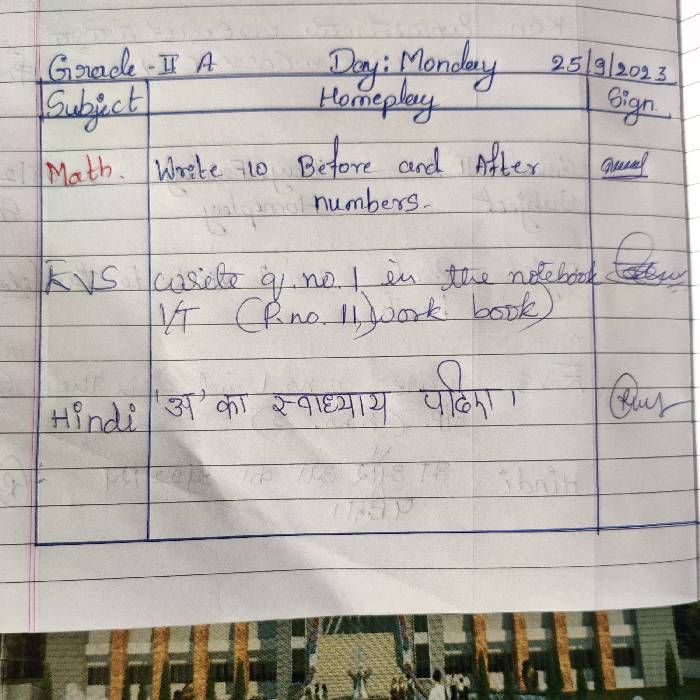 Grade - II A Day: Monday 25/9/2023
Subject Homeplay Sign.
Math. Write 10 Before and After
numbers.
KVS write q. no. 1 in the notebook
(P.no. 11, work book)
Hindi 'अ' का स्वाध्याय पढिए।